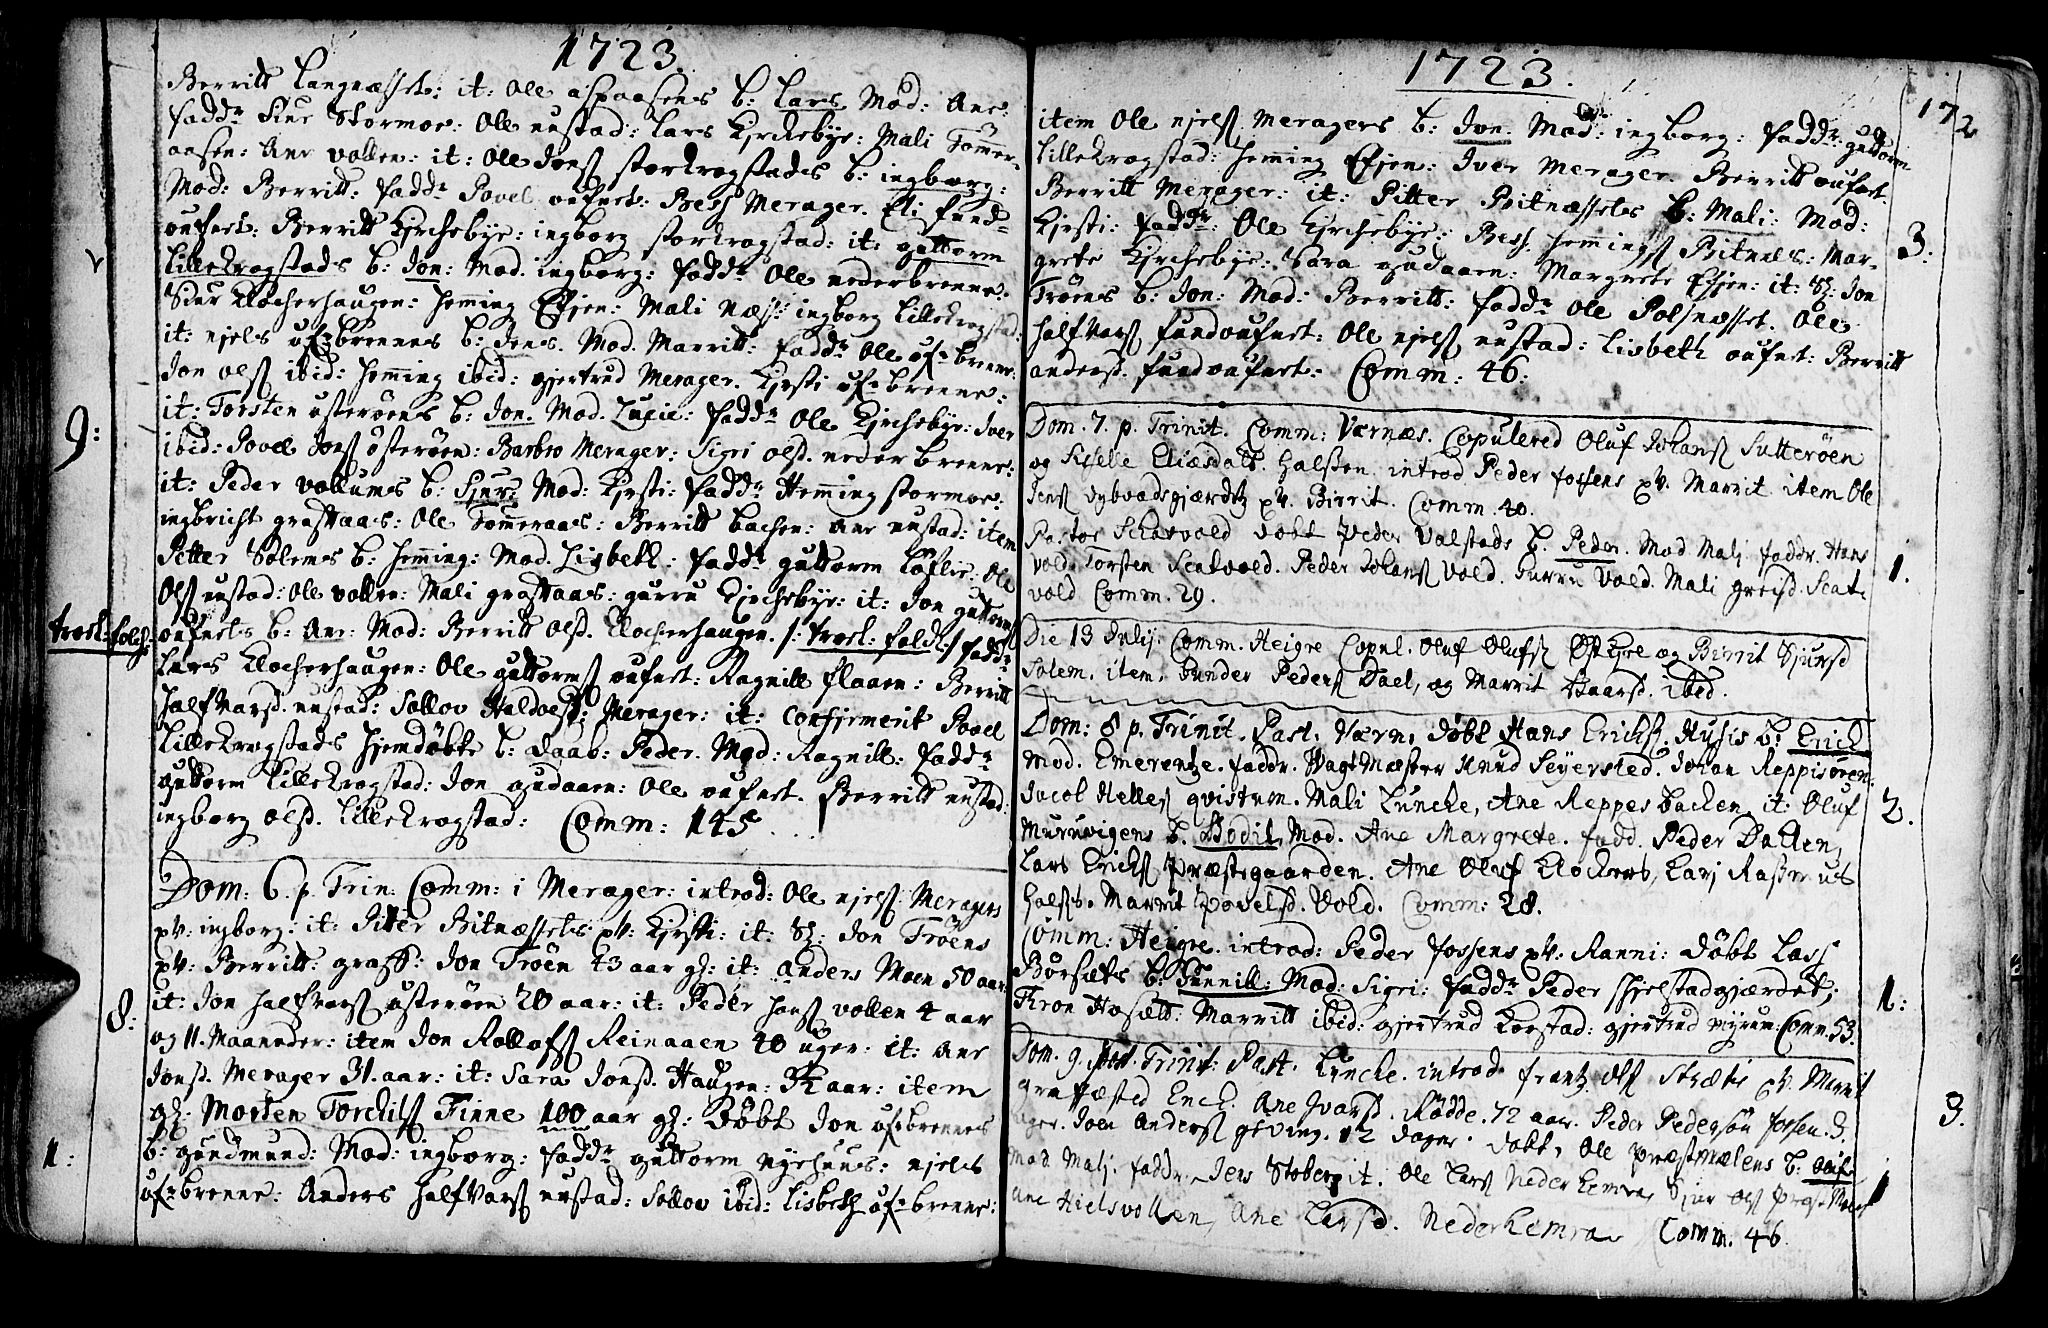 1723.
Berritt Langnæsset: it: Ole aspaasens b: Lars Mod: Ane:
fadd: Siur Stormoe: Ole nustad: Lars Kirkebye: Mali Tømer-
aasen: Ane vollen: it: Ole Jons storkrogstads b: ingborg:
Mod: Berritt: fadd: Povel oufnet: Merager. Eli fund-
oufnet: Berritt Kirchebye: ingborg storkrogstad: it: guttorm
Lillekrogstads b: Jon: Mod. ingborg: fadd: Ole nederbrenne.
Siur Klocherhaugen: Heming Efjen: Mali Næss: ingborg Lillekrogstad:
it: njels ofbrennes b: Jens. Mod. Marritt: fadd: Ole ofbrenne:
Jon ols ibid: Heming ibid: gjertrud Merager. Kjrsti ofbrenne:
it: Torsten østerøens b: Jon. Mod. Lucie: fadd: Ole Kirchebye: Iver
9:
ibid: Povel Jons østerøen: Barbro Merager: Sigri olsd. nederbrenne:
it: Peder vollums b: Sjur: Mod: Kjrsti: fadd: Hemming stormoe:
ingbricht graftaas: Ole Tømeraas: Berritt bachen: Ane nustad: item
Petter Solems b: Heming: Mod. Lisbeth: fadd: guttorm Ole
Ols nustad: Ole vollen: Mali graftaas: gurru Kirchebye: it: Jon guttorms
oufnets b: Ane: Mod: Berritt olsd. Klocherhaugen. /: trol: folch :/ fadd:
trol: folch:
Lars Klocherhaugen: Ole guttorms oufnet: Ragnill flaaen: Berritt
halfvarsd. nustad: Sollov Haldoesd: Merager: it: confirmerit Povel
Lillekrogstads hjemdøbte b: daab: Peder. Mod: Ragnill: fadd:
guttorm Lillekrogstad: Jon gudaaen: Ole oufnet. Berritt nustad:
ingborg olsd. Lillekrogstad: Comm: 145
Dom: 6. p. Trin: Comm: i Merager: introd: Ole njels Meragers
qv: ingborg: it: Piter Bitnæssets qv: Kjrsti: it: Jon Trøens
qv: Berritt: graff: Jon Trøen 43 aar gl: it: Anders Moen 50 aar
8:
it: Jon halfvars østerøen 20 aar: it: Peder hans vollen 4 aar
og 11. Maaneder: item Jon Rollofs Reinaaen 40 uger: it: Ane
Jonsd. Merager 31. aar: it: Sara Jonsd. Haugen: aar: item
gl: Morten Torchils Finne 100 aar gl: Døbt Jon ofbrennes
1:
b: gundmund: Mod: ingborg: fadd: guttorm nyehuus: njels
ofbrenne: Anders halfvars nustad: Sollov ibid: Lisbeth ofbrenne:
1723.
172
item Ole njels Meragers b: Jon. Mod: ingborg: fadd: guttorm
Lillekrogstad: Heming Efjen: Iver Merager. Berritt oufnet.
Berritt Merager: it: Pitter Bitnæssets b: Mali: Mod:
Kjrsti: fadd: Ole Kirchebye: Hemings Bitnæs: Mar-
3:
grete Kirchebye: Sara gudaaen: Margrete Efjen: it: Jon
Trøens b: Jon: Mod: Berritt: fadd: Ole Polsnæsset. Ole
halfvars fundoufnet: Ole njels nustad: Lisbeth oufnet: Berritt
andersd. fundoufnet: Comm: 46:
Dom. 7. p. Trinit. Comm: Værnæs. Copulered Oluf Johans Sutterøen
og Sissele Eliæsdatt. Halsten. introd Peder fossens qv. Marrit item Ole
Jens qv. Birrit. Comm. 40.
Pastor Schatvold døbt Peder Valstads b. Peder. Mod Mali faddr. Hans
1.
vold. Torsten Scatvold. Peder Johans Vold. Gurru Vold. Mali greisd. Scat-
vold Comm. 29.
Die 13 Julij. Comm. Heigre Copul. Oluf Olufs og Birrit Sjursd
Solem. item. Gunder Peders Dael, og Marrit Haarsd. ibid.
Dom: 8 p. Trinit. Past. Værn. døbt Hans Ericks. Husis b: Erick
Mod. Emerentze. faddr. Wagtmæster Knud Seyersted. Johan Reppisøren:
Jacob Helles qvistum. Mali Luncke, Ane Reppesbacken, it: Oluf
2.
Muruvigens b. Bodil. Mod. Ane Margrete. fadd. Peder Dallen,
Lars Ericks Præstegaarden. Ane Oluf Klockers, Lars Rasmus
Hals. Marrit Povelsd. Vold. Comm: 28.
Comm: Heigre. introd: Peder fossens qv: Ranni: døbt Lass
Børsæts b: Gunnill: Mod: Sigri: fadd: Peder Skjelstadgjærdet;
1:
Tron Hosætt: Marritt ibid: gjertrud Korstad: gjertrud myrum: Comm. 53.
Dom. 9. post Trinit: Past. Luncke. introd frantz ols Strætes qv. Marrit
graffæsted Enck. Ane Ivarsd. Rødde. 72 aar. Peder Pedersøn fossen. 3.
3.
uger. Joen Anders geving. 12 dager. døbt, Ole Præstmælens b. Oluf.
1
Mod. Mali. faddr. Jens Stoberg it. Ole Lars Nederkemra, Sjur Ols Præstmælen
Ane Nielsvollen, Ane Larsd. Nederkemra Comm. 46.